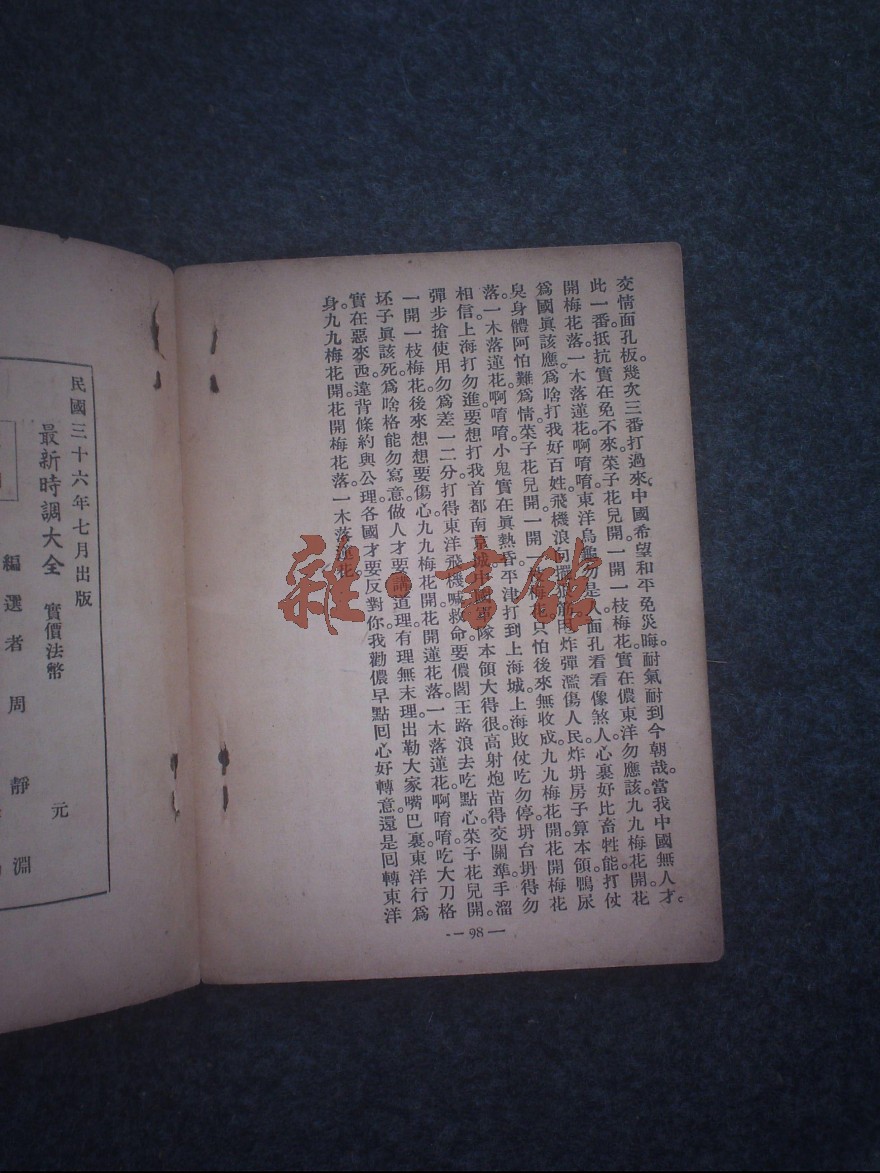 交情面孔板。幾次三番打過來。中國希望和平免災晦。耐氣耐到今朝哉。當我中國無人才。
此一番。抵抗實在免不來。菜子花兒開。一開一枝梅花。實在儂東洋勿應該。九九梅花開花
開梅花落。一木落蓮花。啊唷唷。東洋烏龜勿是人。面孔看看像煞人。心裏好比畜牲能。打仗
爲國眞該應。爲啥打我好百姓。飛機浪向擺炸彈濫傷人民。炸坍房子算本領。鴨尿
臭。身體阿怕難爲情。菜子花兒開。一開一枝梅花。只怕後來無收成。九九梅花開花開梅花
落。一木落蓮花。啊唷唷。小鬼實在眞熱昏。平津打到上海城。上海敗仗吃勿停。坍台坍得勿
相信。上海打勿進。要想打我首都南京城。中國軍隊本領大得很。高射炮苗得交關準。手溜
彈步搶使用勿爲差。一二分打得東洋飛機喊救命。要儂閻王路浪去吃點心。菜子花兒開。
一開一枝梅花。後來想想要傷心。九九梅花開花開蓮花落。一木落蓮花。啊唷唷。吃大刀格
坯子眞該死。爲啥格能勿寫意。做人才要講道理。有理無末理出勒大家嘴巴裏。東洋行爲
實在惡來西。違背條約與公理。各國才要反對你。我勸儂早點回心好轉意。還是回轉東洋
身。九九梅花開花開梅花落。一木落蓮花。
—98—
民國三十六年七月出版
最新時調大全
實價法幣 元
編選者 周靜淵
雜·書館